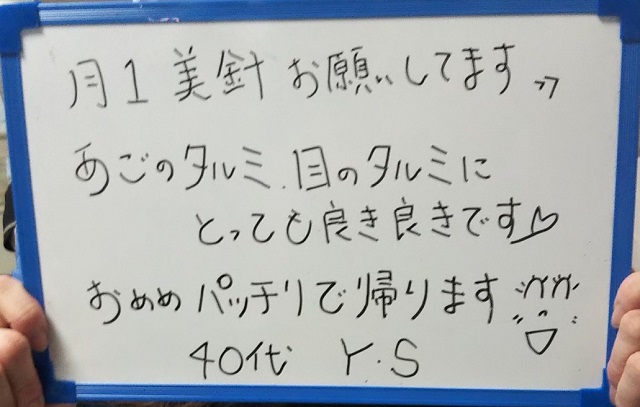 月1 美針 お願いしてます〃
あごのタルミ、目のタルミに
とっても良き良きです♡
おめめパッチリで帰ります
40代 Y.S